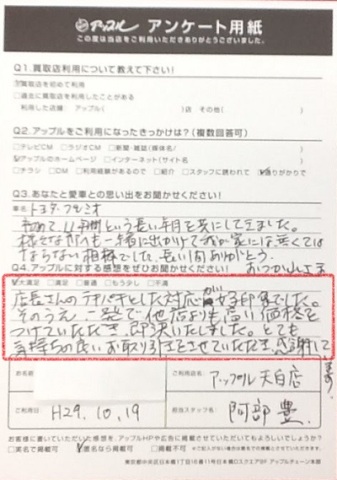 アップル アンケート用紙
この度は当店をご利用いただきありがとうございました。
Q1.買取店利用について教えて下さい!
買取店を初めて利用
過去に買取店を利用したことがある
利用した店舗: アップル( )店 その他( )
Q2.アップルをご利用になったきっかけは?(複数回答可)
テレビCM ラジオCM 新聞・雑誌(媒体名/ )
アップルのホームページ インターネット(サイト名 )
チラシ DM 利用経験があるので 紹介 スタッフに誘われて 通りがかりで
Q3.あなたと愛車との思い出をお聞かせください!
車名 トヨタ・プレミオ
初めて、11年間という長い年月を共にして来ました。
一緒に出かけて我が家には無くては
ならない相棒でした。長い間ありがとう。
おつかれさま
Q4.アップルに対する感想をぜひお聞かせください!
大満足 満足 普通 もう少し 不満
店長さんのテキパキとした対応が好印象でした。
そのうえ一発で他店よりも高い価格を
つけていただき、即決いたしました。とても
気持ちの良いお取り引きをさせていただき感謝して
ます。
お名前
ご利用店名 アップル天白店
ご利用日 H29.10.19
担当スタッフ名 阿部 豊
お客様に書いていただいた感想を、アップルHPや広告に掲載させていただいてもよろしいでしょうか?
実名で掲載可 匿名なら掲載可 掲載不可
東京都中央区日本橋1丁目16番11号日本橋ロスクエア8F アップルチェーン本部